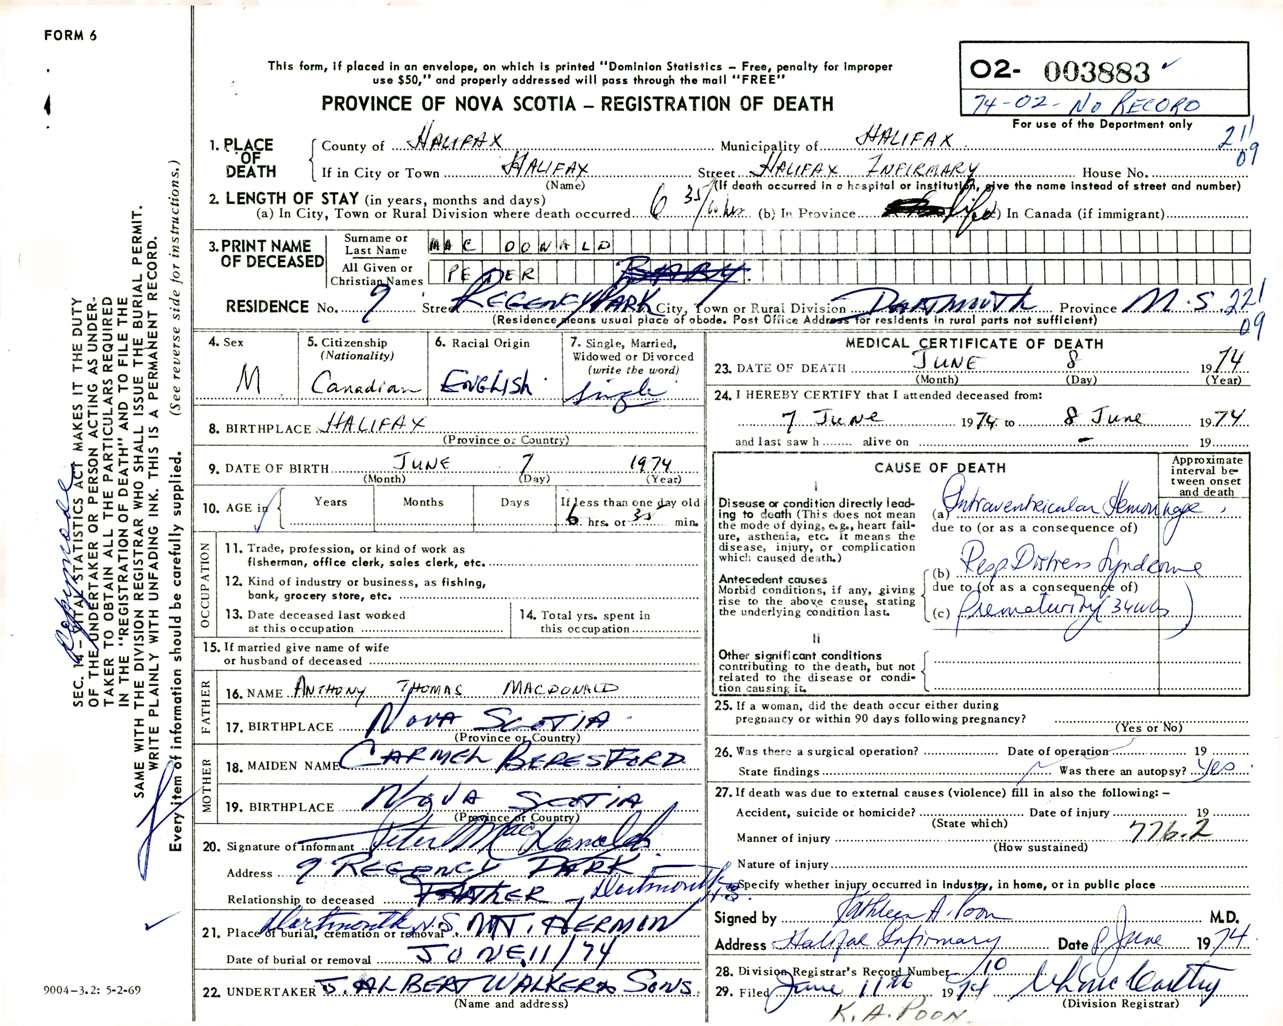 FORM 6
This form, if placed in an envelope, on which is printed "Dominion Statistics – Free, penalty for improper
use $50," and properly addressed will pass through the mail "FREE"
PROVINCE OF NOVA SCOTIA – REGISTRATION OF DEATH
02- 003883
74-02- NO RECORD
For use of the Department only
211
09
1. PLACE OF DEATH
County of HALIFAX Municipality of HALIFAX
If in City or Town HALIFAX Street HALIFAX INFIRMARY House No.
(Name) (If death occurred in a hospital or institution, give the name instead of street and number)
2. LENGTH OF STAY (in years, months and days)
(a) In City, Town or Rural Division where death occurred 6 35/60 hrs (b) In Province life (c) In Canada (if immigrant)
3. PRINT NAME OF DECEASED
Surname or Last Name MAC DONALD
All Given or Christian Names PETER BABY
RESIDENCE No. 9 Street REGENCY PARK City, Town or Rural Division DARTMOUTH Province N.S. 221
09
(Residence means usual place of abode. Post Office Address for residents in rural parts not sufficient)
4. Sex
M
5. Citizenship
(Nationality)
Canadian
6. Racial Origin
ENGLISH
7. Single, Married,
Widowed or Divorced
(write the word)
Single
8. BIRTHPLACE HALIFAX
(Province or Country)
9. DATE OF BIRTH JUNE 7 1974
(Month) (Day) (Year)
10. AGE in
Years Months Days If less than one day old
6 hrs. or 35 min.
OCCUPATION
11. Trade, profession, or kind of work as
fisherman, office clerk, sales clerk, etc.
12. Kind of industry or business, as fishing,
bank, grocery store, etc.
13. Date deceased last worked
at this occupation
14. Total yrs. spent in
this occupation
15. If married give name of wife
or husband of deceased
FATHER
16. NAME ANTHONY THOMAS MACDONALD
17. BIRTHPLACE NOVA SCOTIA
(Province or Country)
MOTHER
18. MAIDEN NAME CARMEL BERESFORD
19. BIRTHPLACE NOVA SCOTIA
(Province or Country)
20. Signature of informant Peter MacDonald
Address 9 REGENCY PARK
Dartmouth N.S.
Relationship to deceased FATHER
Dartmouth N.S. MT. HERMON
21. Place of burial, cremation or removal
Date of burial or removal JUNE 11/74
22. UNDERTAKER J. ALBERT WALKER & SONS.
(Name and address)
MEDICAL CERTIFICATE OF DEATH
23. DATE OF DEATH JUNE 8 1974
(Month) (Day) (Year)
24. I HEREBY CERTIFY that I attended deceased from:
7 June 1974 to 8 June 1974
and last saw h alive on – 19
CAUSE OF DEATH
Approximate
interval be-
tween onset
and death
I
Disease or condition directly lead-
ing to death (This does not mean
the mode of dying, e.g., heart fail-
ure, asthenia, etc. It means the
disease, injury, or complication
which caused death.)
(a) Intraventricular Hemorrhage
due to (or as a consequence of)
Antecedent causes
Morbid conditions, if any, giving
rise to the above cause, stating
the underlying condition last.
(b) Resp Distress Syndrome
due to (or as a consequence of)
(c) Prematurity (34 wks)
II
Other significant conditions
contributing to the death, but not
related to the disease or condi-
tion causing it.
25. If a woman, did the death occur either during
pregnancy or within 90 days following pregnancy?
(Yes or No)
26. Was there a surgical operation? Date of operation 19
State findings Was there an autopsy? Yes
27. If death was due to external causes (violence) fill in also the following: –
Accident, suicide or homicide? Date of injury 19
(State which)
Manner of injury 776.2
(How sustained)
Nature of injury
Specify whether injury occurred in industry, in home, or in public place
Signed by Kathleen A. Poon M.D.
Address Halifax Infirmary Date 8 June 1974
28. Division Registrar's Record Number 10
29. Filed June 11th 1974
(Division Registrar)
K. A. POON
SEC. 14 – VITAL STATISTICS ACT MAKES IT THE DUTY
OF THE UNDERTAKER OR PERSON ACTING AS UNDER-
TAKER TO OBTAIN ALL THE PARTICULARS REQUIRED
IN THE "REGISTRATION OF DEATH" AND TO FILE THE
SAME WITH THE DIVISION REGISTRAR WHO SHALL ISSUE THE BURIAL PERMIT.
WRITE PLAINLY WITH UNFADING INK. THIS IS A PERMANENT RECORD.
Every item of information should be carefully supplied. (See reverse side for instructions.)
9004–3.2: 5-2-69